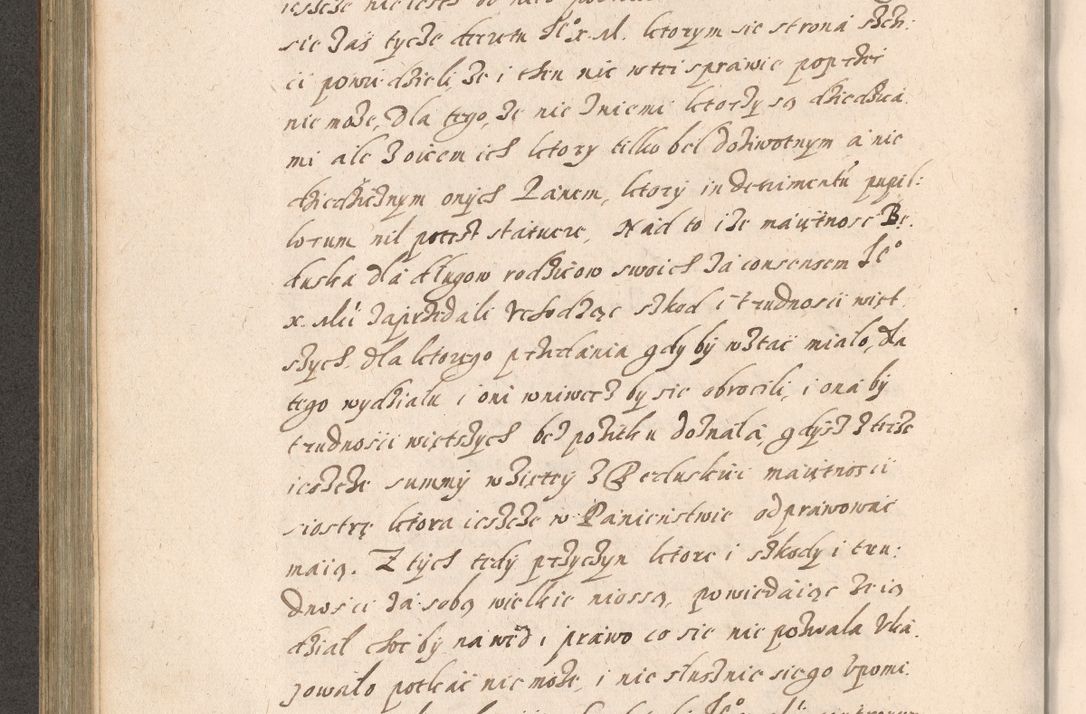 się zaś tycze decretu Je° x. M. ktorym się strona szcż:
ci powiedzieli, że i ten nic w tei sprawie poprzeć
nie może, Dla tego, że nie z niemi ktorzy są dziedzica
mi ale z oicem ich ktory tilko bel dożiwotnym a nie
dziedzicznym onych Panem, ktory in detrimentu pupil:
lorum nil potest statuere, Nad to iże maiętnosc Be:
duska dla długow rodzicow swoich za consensem Je°
x. Mci zaprzedali Vchodząc szkod i trudnosci więt
szych, dla ktorego przedania gdy by wstać miało, dla
tego wydziału i oni wniwecz by się obrocili, i ona by
trudnosci więtszych bez pożitku doznała, gdysz z teize
ieszcze summy wzietey z Perduskiei maiętnosci
siostrę ktora ieszcze w Panienstwie odprawować
maią. Z tych tedy przyczyn ktore i szkody i tru:
dnosci za sobą wielkie niossą, powiedaiąc że ia
dział choc by nawed i prawo co się nie pozwala Vka
zowało potkać nie może, i nie słusznie się go Vpomi.